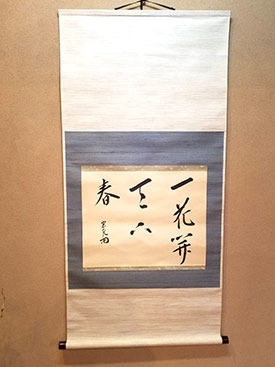 一花開
天下
春